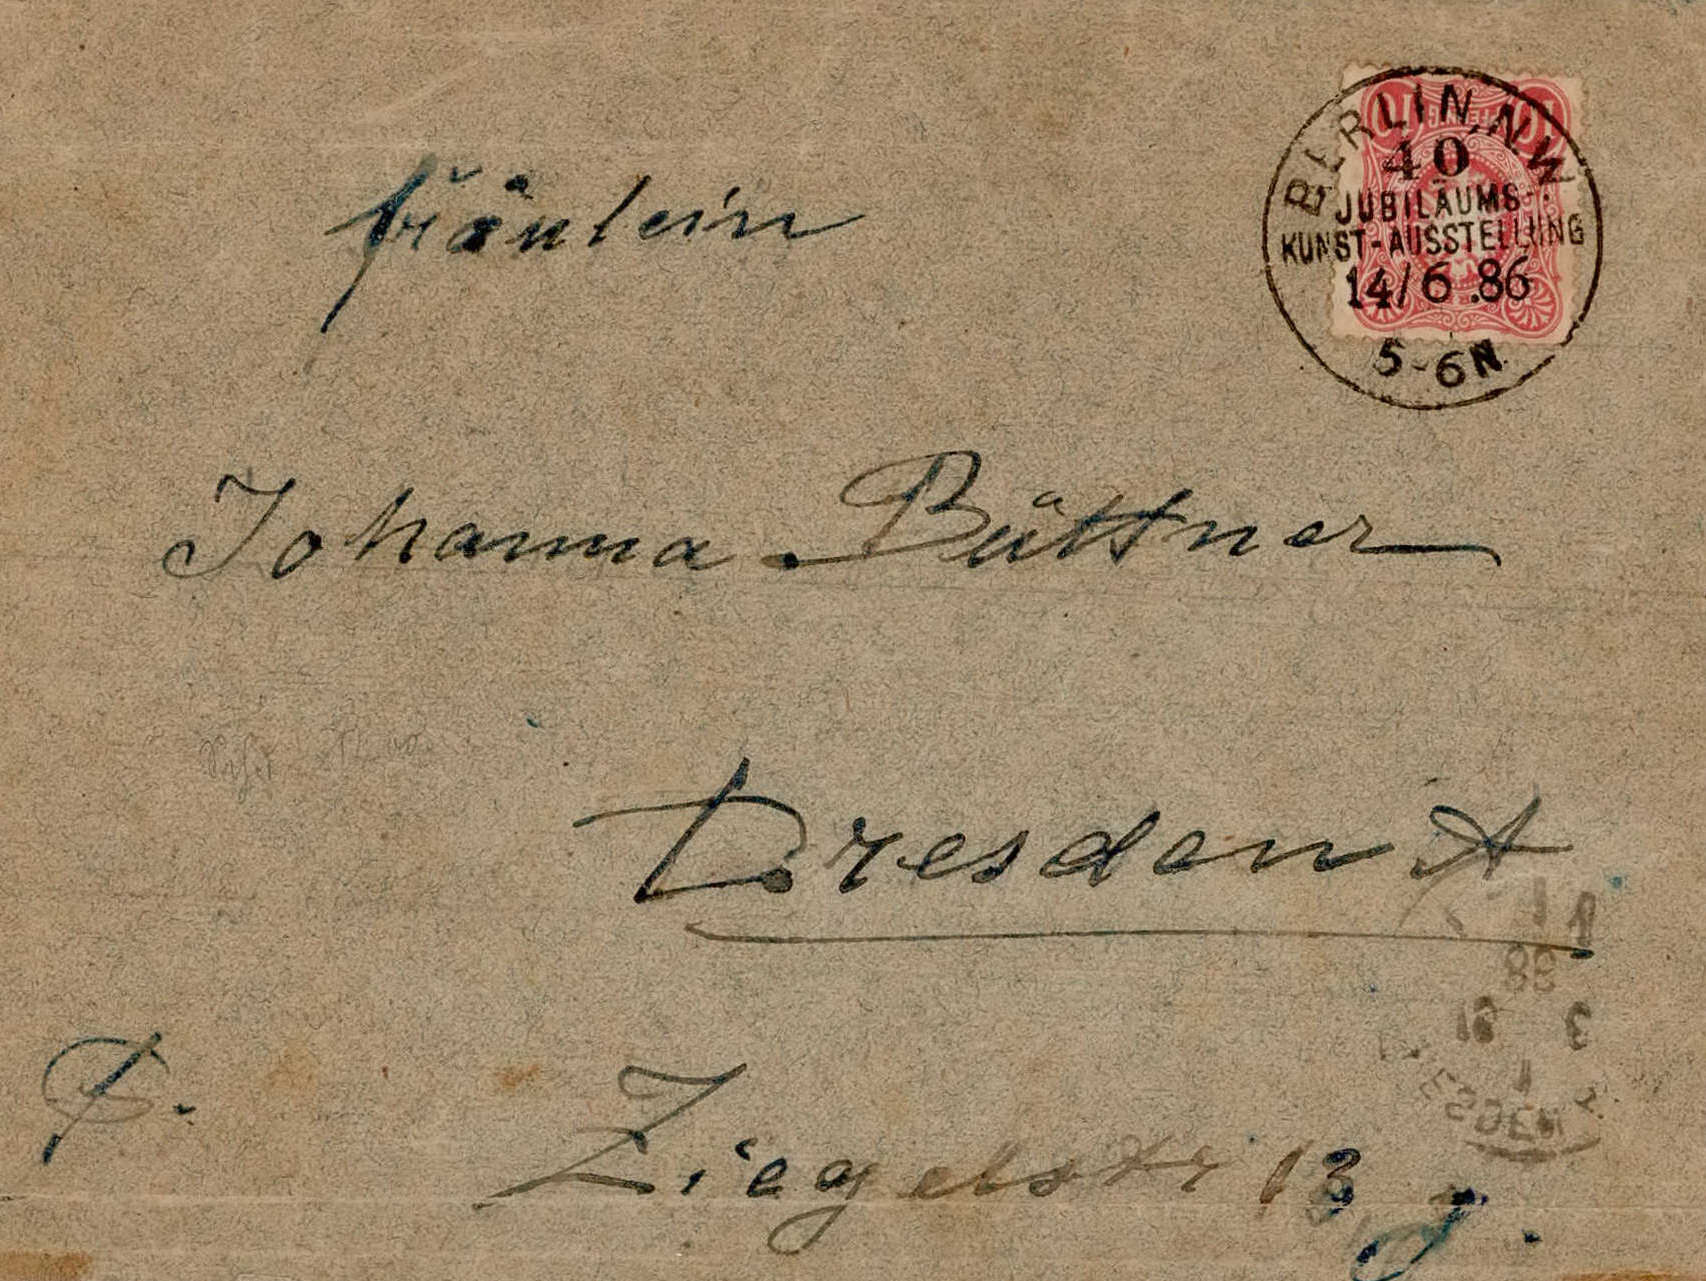 BERLIN, N.W.
40
JUBILÄUMS-
KUNST-AUSSTELLUNG
14/6.86
5-6N.
Fräulein
Johanna Büttner
Dresden A
Ziegelstr 13